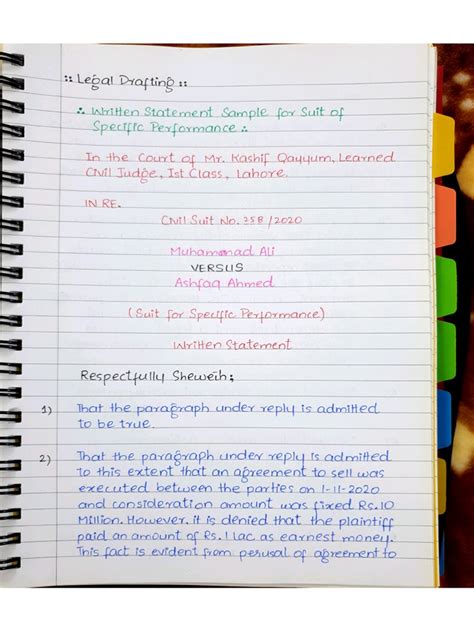 :: Legal Drafting ::
∴ Written Statement Sample for Suit of
Specific Performance ∴
In the Court of Mr. Kashif Qayyum, Learned
Civil Judge, Ist Class, Lahore.
IN RE.
Civil Suit No. 358/2020
Muhammad Ali
VERSUS
Ashfaq Ahmed
(Suit for Specific Performance)
Written Statement
Respectfully Sheweth;
1) That the paragraph under reply is admitted
to be true.
2) That the paragraph under reply is admitted
to this extent that an agreement to sell was
executed between the parties on 1-11-2020
and consideration amount was fixed Rs.10
Million. However, it is denied that the plaintiff
paid an amount of Rs.1 lac as earnest money.
This fact is evident from perusal of agreement to